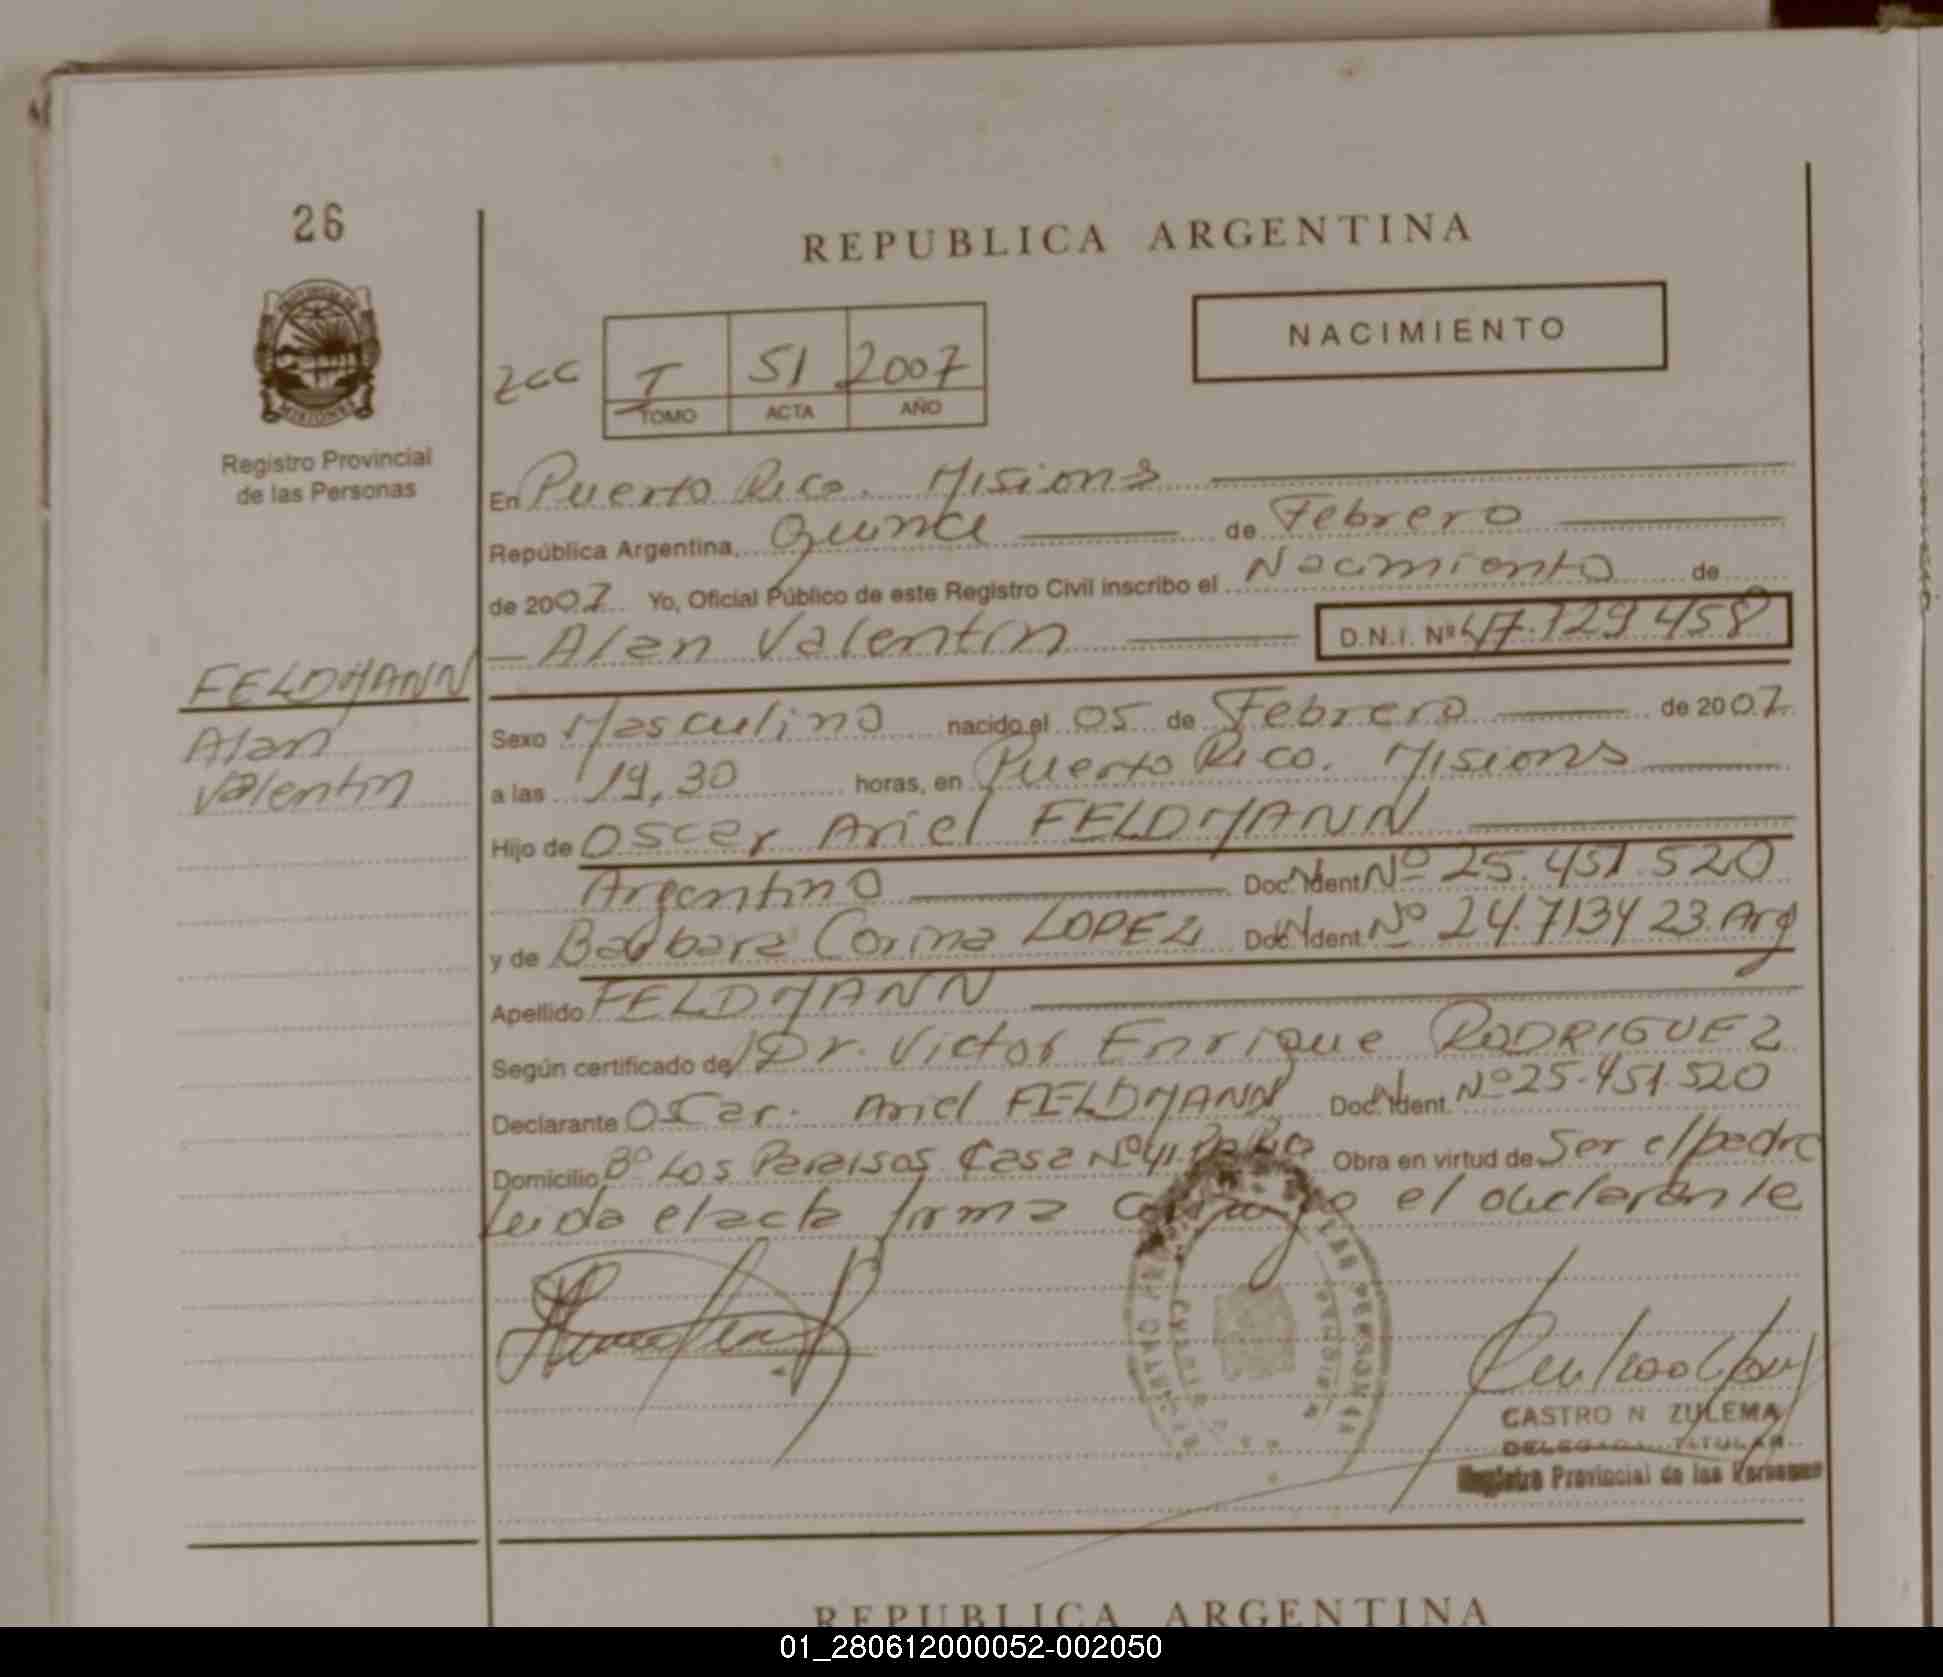 26
REPUBLICA ARGENTINA
NACIMIENTO
PROVINCIA DE
MISIONES
Registro Provincial
de las Personas
2cc
T 51 2007
TOMO ACTA AÑO
En Puerto Rico. Misions
República Argentina, Quince de Febrero
de 2007 Yo, Oficial Público de este Registro Civil inscribo el Nacimiento de
Alan Valentin D.N.I. Nº 47.729.458
FELDMANN
Alan
Valentin
Sexo Masculino nacido el 05 de Febrero de 2007
a las 19,30 horas, en Puerto Rico. Misions
Hijo de Oscar Ariel FELDMANN
Argentino Doc. Ident. Nº 25.451.520
y de Barbara Corina LOPEZ Doc. Ident. Nº 24.713423. Arg
Apellido FELDMANN
Según certificado de Dr. Victor Enrique RODRIGUEZ
Declarante Oscar. Ariel FELDMANN Doc. Ident. Nº 25.451.520
Domicilio Bº Los Paraisos Casa Nº 41. Obra en virtud de Ser el padre
Leida el acta firma el declarante
CASTRO N ZULEMA
DELEGADA TITULAR
Registro Provincial de las Personas
REPUBLICA ARGENTINA
01_280612000052-002050